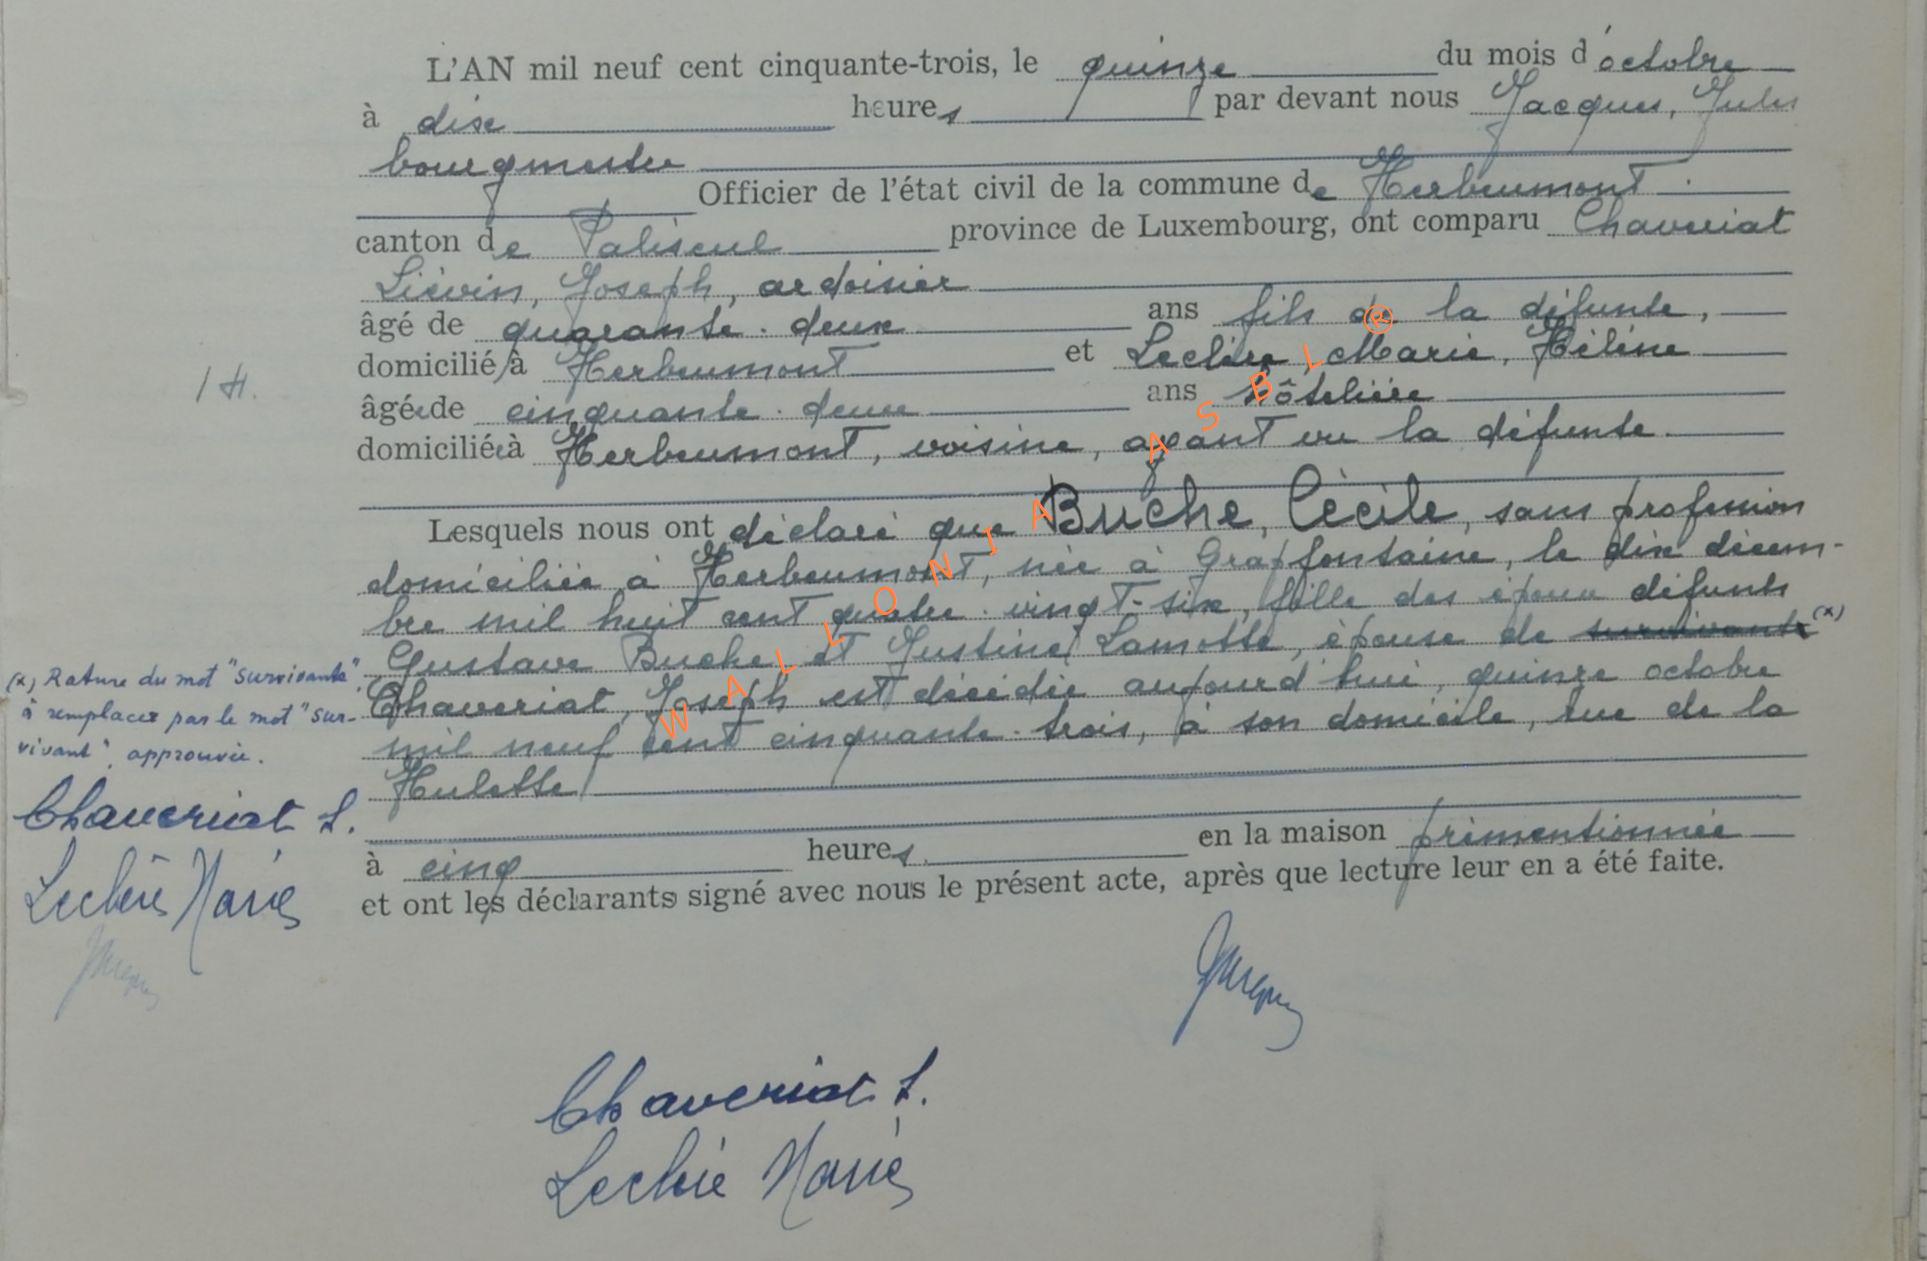 L'AN mil neuf cent cinquante-trois, le quinze du mois d'octobre
à dix heures par devant nous Jacques, Jules
bourgmestre
Officier de l'état civil de la commune de Herbeumont
canton de Paliseul province de Luxembourg, ont comparu Chaveriat
Liévin, Joseph, ardoisier
âgé de quarante-deux ans fils de la défunte,
domicilié à Herbeumont et Leclère Marie, Hélène
1 H.
âgée de cinquante-deux ans hôtelière
domiciliée à Herbeumont, voisine, ayant vu la défunte.
Lesquels nous ont déclaré que Buche, Cécile, sans profession
domiciliée à Herbeumont, née à Grapfontaine, le dix décem-
bre mil huit cent quatre-vingt-six, fille des époux défunts
Gustave Buche et Justine Lamotte, épouse de survivante (x)
Chaveriat, Joseph est décédée aujourd'hui, quinze octobre
mil neuf cent cinquante-trois, à son domicile, rue de la
Hulette
à cinq heures en la maison prémentionnée
et ont les déclarants signé avec nous le présent acte, après que lecture leur en a été faite.
(x) Rature du mot "survivante",
à remplacer par le mot "sur-
vivant", approuvée.
Chaveriat L.
Leclère Marie
Jacques
Jacques
Chaveriat L.
Leclère Marie
WALLONIA ASBL ®